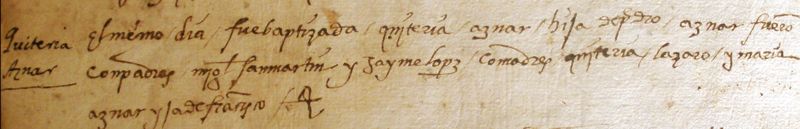 Quiteria el mesmo dia / fue baptizada / quiteria / aznar / hija de pedro / aznar fuerō
Aznar conpadres migl sanmartin y Jayme lopz / comadres quiteria / lazaro / y maria
aznar yja de francisco /